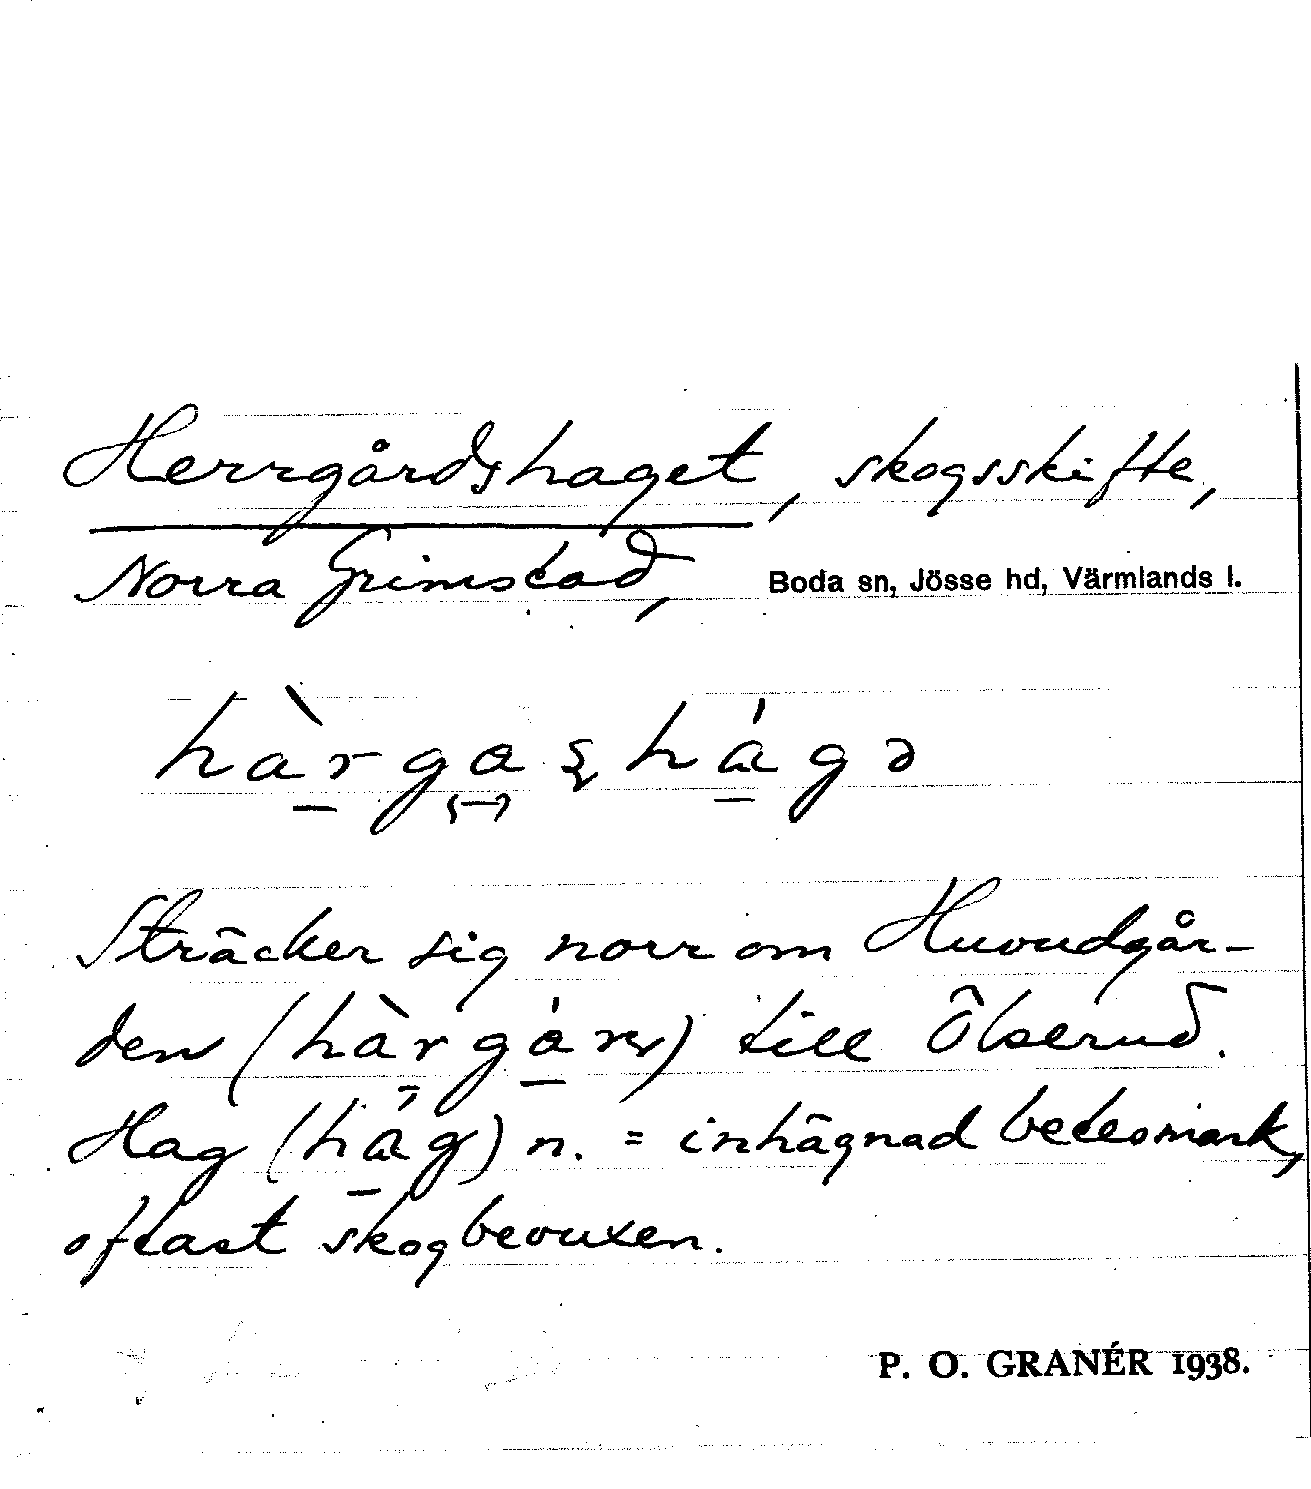 Herrgårdshaget, skogsskifte,
Norra Grimstad, Boda sn, Jösse hd, Värmlands l.
hàrgaʂhágə
Sträcker sig norr om Huvudgår-
den (hàrgá) till Ölserud.
Hag (hág) n. = inhägnad betesmark,
oftast skogbevuxen.
P. O. GRANÉR 1938.